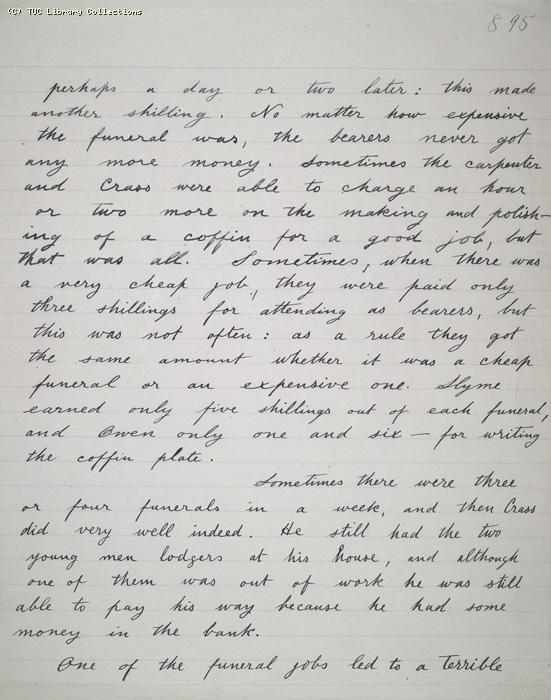 (C) TUC Library Collections
895
perhaps a day or two later: this made
another shilling. No matter how expensive
the funeral was, the bearers never got
any more money. Sometimes the carpenter
and Crass were able to charge an hour
or two more on the making and polish-
ing of a coffin for a good job, but
that was all. Sometimes, when there was
a very cheap job, they were paid only
three shillings for attending as bearers, but
this was not often: as a rule they got
the same amount whether it was a cheap
funeral or an expensive one. Slyme
earned only five shillings out of each funeral,
and Owen only one and six — for writing
the coffin plate.
Sometimes there were three
or four funerals in a week, and then Crass
did very well indeed. He still had the two
young men lodgers at his house, and although
one of them was out of work he was still
able to pay his way because he had some
money in the bank.
One of the funeral jobs led to a Terrible